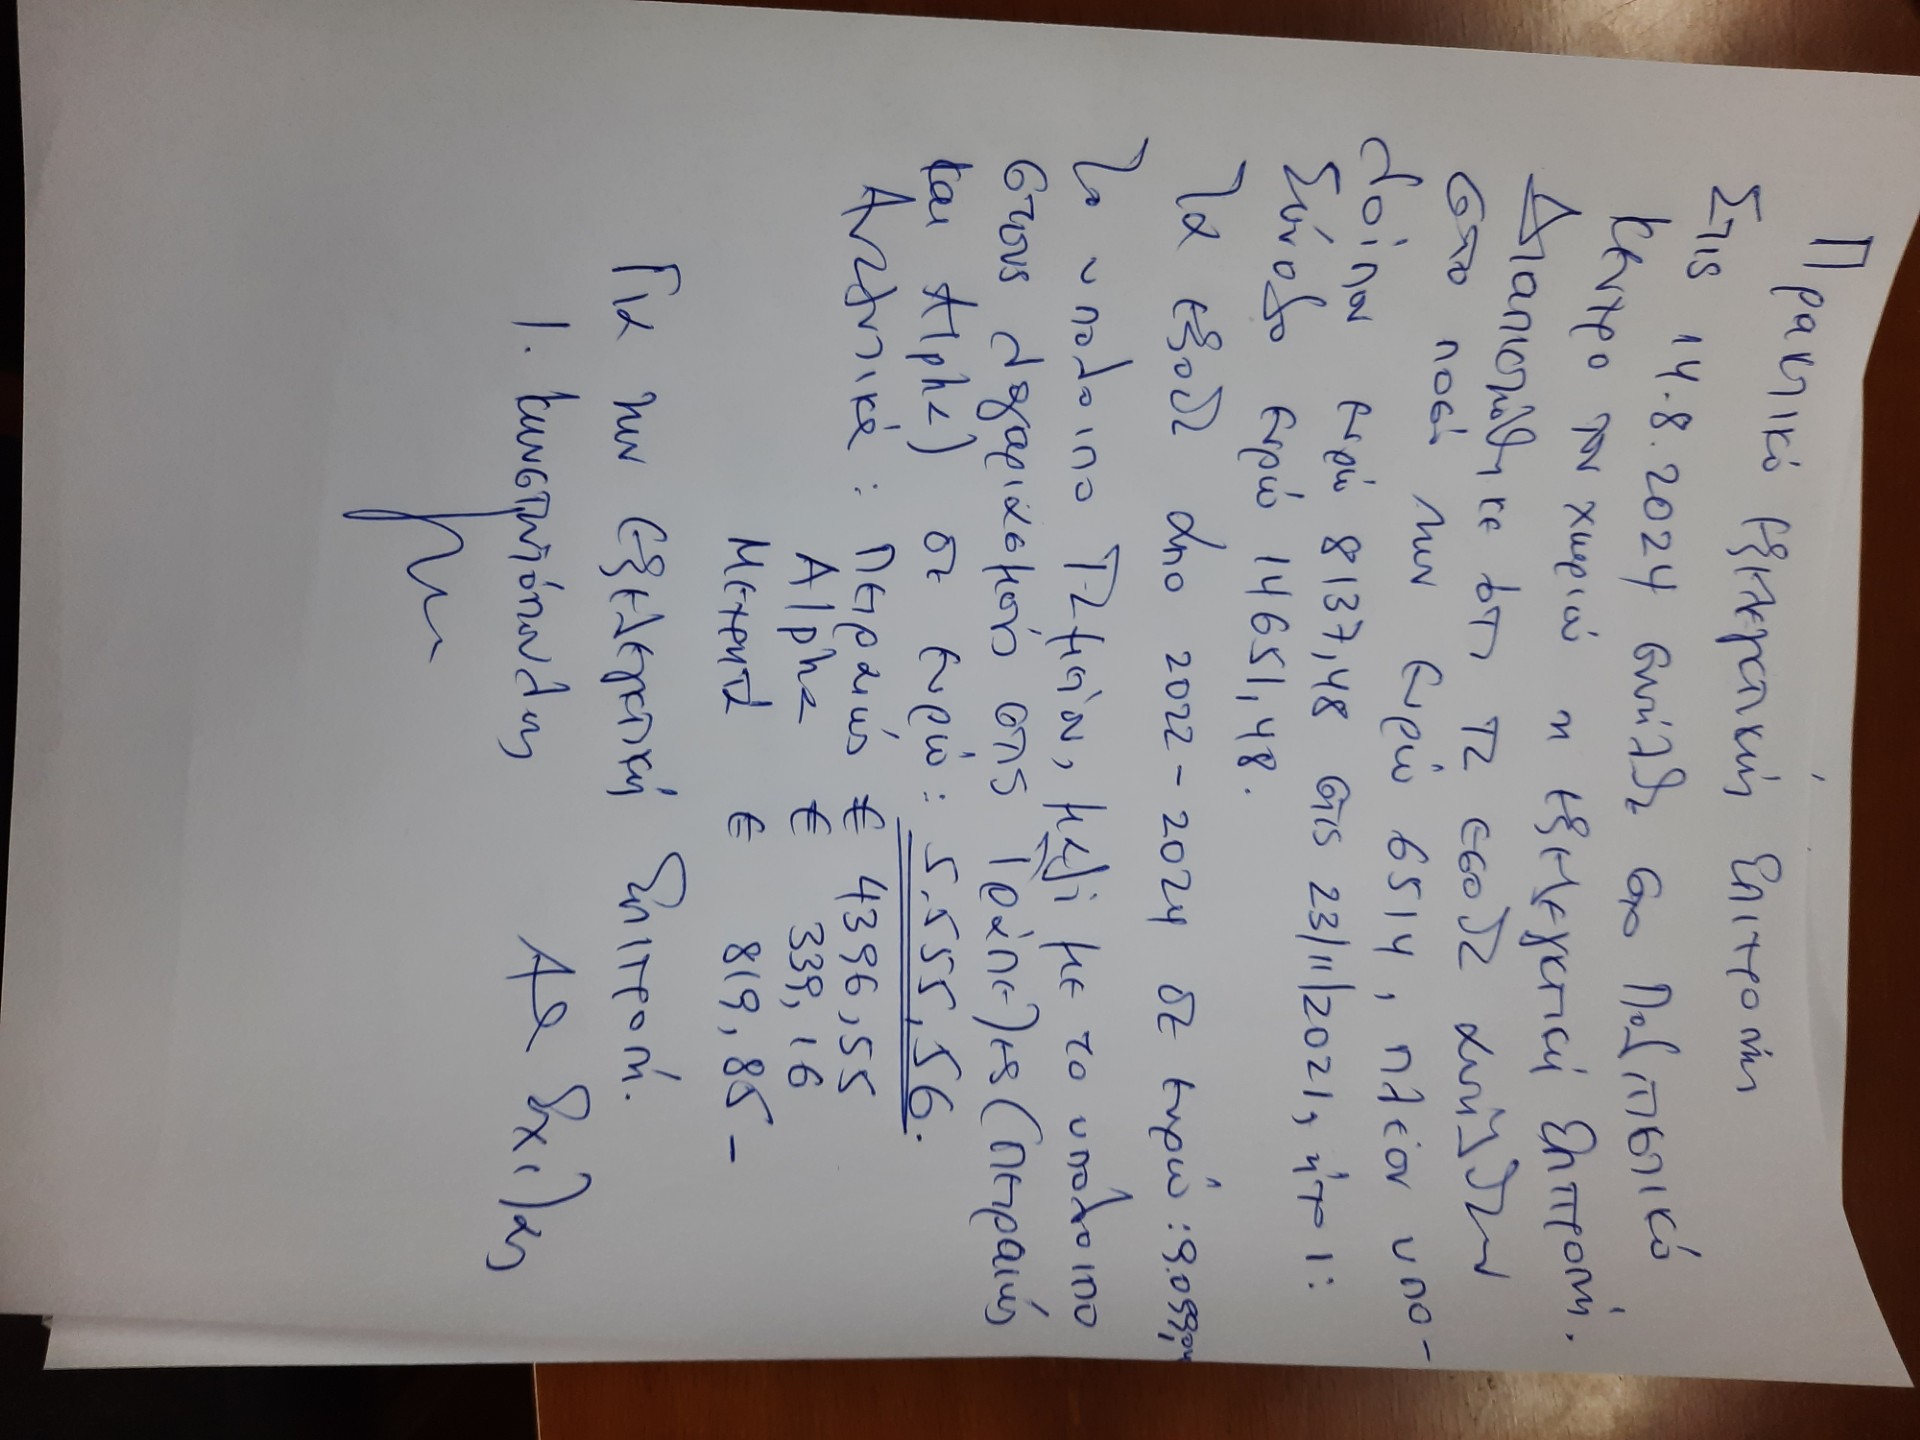 Πρακτικό Εξελεγκτικής Επιτροπής
Στις 14.8.2024 συνήλθε στο Πολιτιστικό
κέντρο του χωριού η εξελεγκτική Επιτροπή.
Διαπιστώθηκε ότι τα έσοδα ανήλθαν
στο ποσό των ευρώ 6514, πλέον υπο-
λοίπου ευρώ 8137,48 στις 23/11/2021, ήτοι:
Σύνολο ευρώ 14651,48.
Τα έξοδα από 2022-2024 σε ευρώ: 9.099,
Το υπόλοιπο Ταμείου, μαζί με το υπόλοιπο
στους λογαριασμούς στις Τράπεζες (Πειραιώς
και Alpha) σε ευρώ: 5.555,56.
Αναλυτικά: Πειραιώς € 4396,55
Alpha € 339,16
Μετρητά € 819,85-
Για την Εξελεγκτική Επιτροπή.
1. Κωνσταντόπουλος